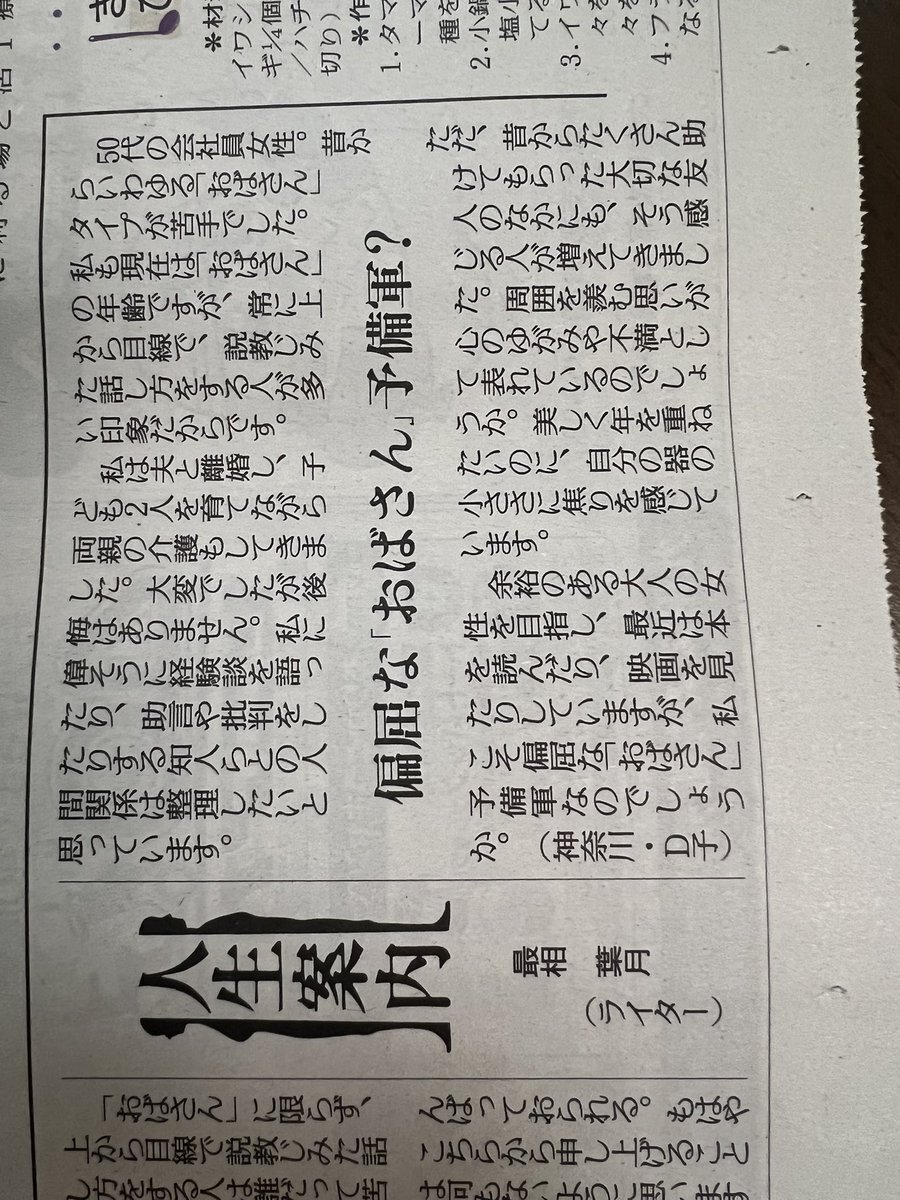 *材
イワシ
ギ¼個
/ハチ
切り)
*作
1.タマ
ーマ
種を
2.小鍋
塩小
3.イワ
4.フラ
なる
偏屈な「おばさん」予備軍?
50代の会社員女性。昔か
らいわゆる「おばさん」
タイプが苦手でした。
私も現在は「おばさん」
の年齢ですが、常に上
から目線で、説教じみ
た話し方をする人が多
い印象だからです。
私は夫と離婚し、子
ども2人を育てながら
両親の介護もしてきま
した。大変でしたが後
悔はありません。私に
偉そうに経験談を語っ
たり、助言や批判をし
たりする知人らとの人
間関係は整理したいと
思っています。
ただ、昔からたくさん助
けてもらった大切な友
人のなかにも、そう感
じる人が増えてきまし
た。周囲を羨む思いが
心のゆがみや不満とし
て表れているのでしょ
うか。美しく年を重ね
たいのに、自分の器の
小ささに焦りを感じて
います。
余裕のある大人の女
性を目指し、最近は本
を読んだり、映画を見
たりしていますが、私
こそ偏屈な「おばさん」
予備軍なのでしょう
か。(神奈川・D子)
人生案内
最相 葉月
(ライター)
「おばさん」に限らず、
上から目線で説教じみた話
し方をする人は誰だって苦
んばっておられる。もはや
こちらから申し上げること
は何もないように思います